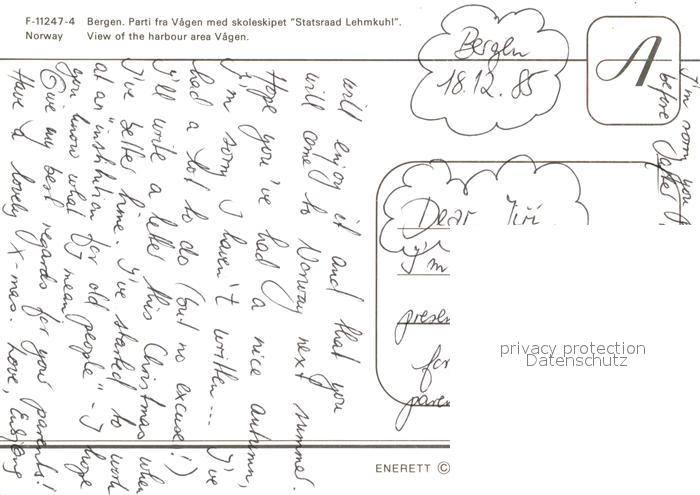 F-11247-4 Bergen. Parti fra Vågen med skoleskipet "Statsraad Lehmkuhl".
Norway View of the harbour area Vågen.
Bergen
18.12.85
A
Dear Jiří
I'm
presen
for
paren
I'm
you
before
will enjoy it and that you
will come to Norway next summer.
Hope you've had a nice autumn,
I'm sorry I haven't written... I've
had a lot to do (but no excuse!)
I'll write a letter this Christmas when
I've better time. I've started to work
at an "institution for old people" - I hope
you know what I mean.
Give my best regards for your parents!
Have a lovely X-mas. Love,
ENERETT ©
privacy protection
Datenschutz